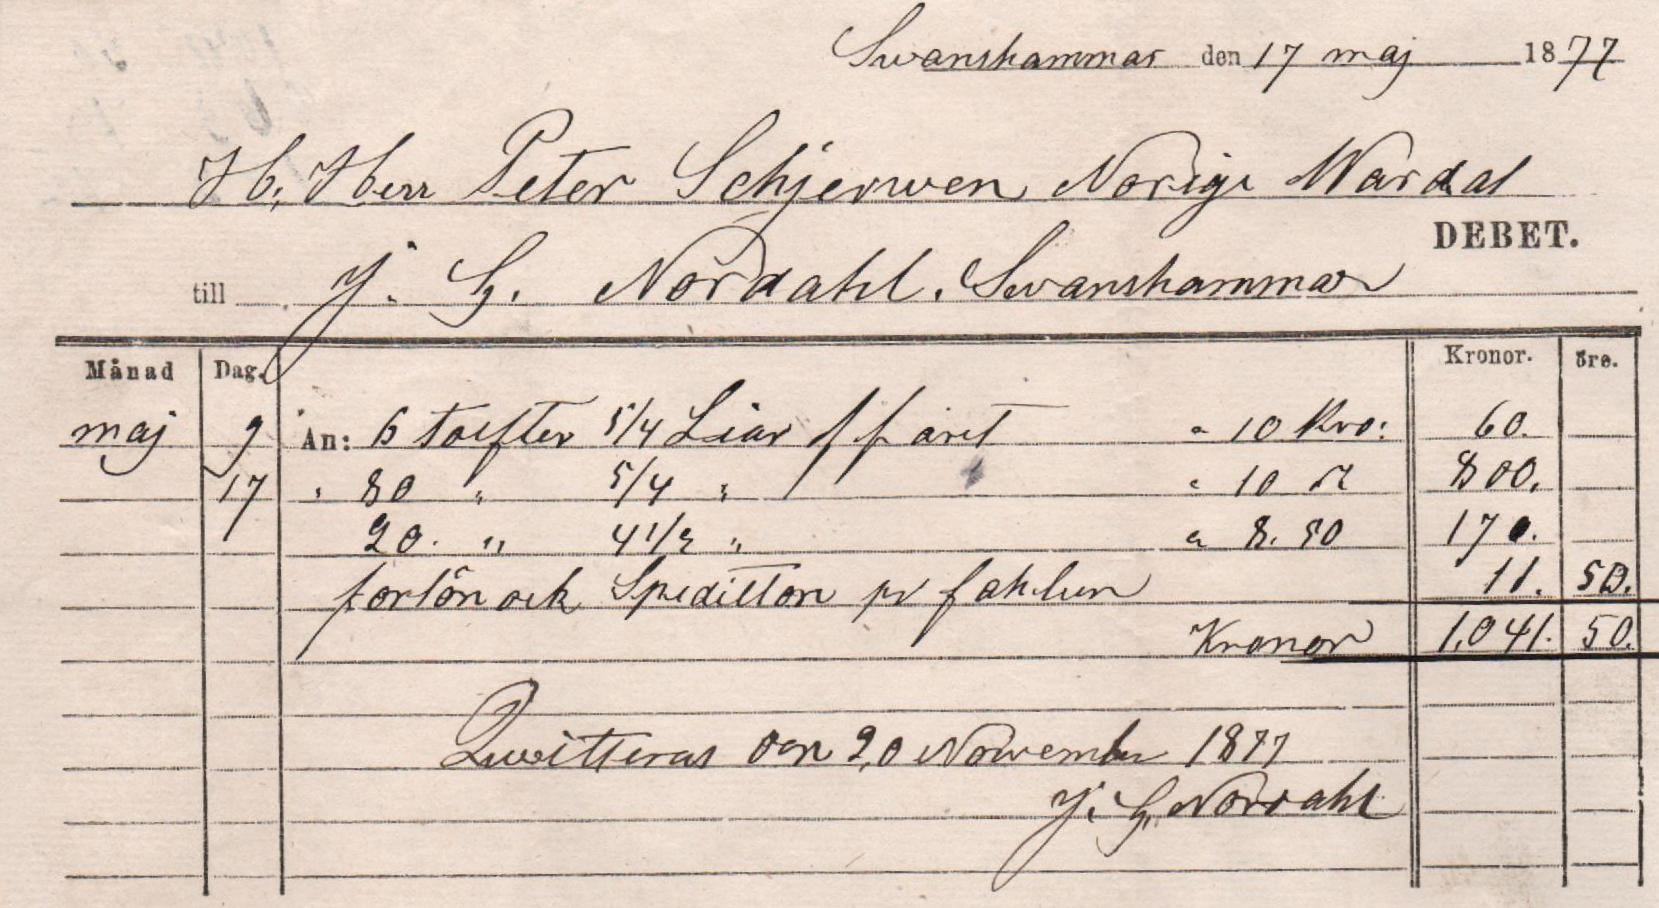 Swanshammar den 17 maj 1877
H. Herr Peter Schjerwen Norige Wardal
DEBET.
till J. G. Nordahl. Swanshammar
Månad Dag. Kronor. öre.
maj 9 An: 6 tolfter 5/4 Liar f f a 10 Kro: 60.
17 " 80 " 5/4 " " 10 800.
20. " 4 1/2 " a 8. 50 170.
forlön ock Spedition pr fahlun 11. 50.
Kronor 1,041. 50.
Qwitteras den 20 Nowember 1877
J. G. Nordahl